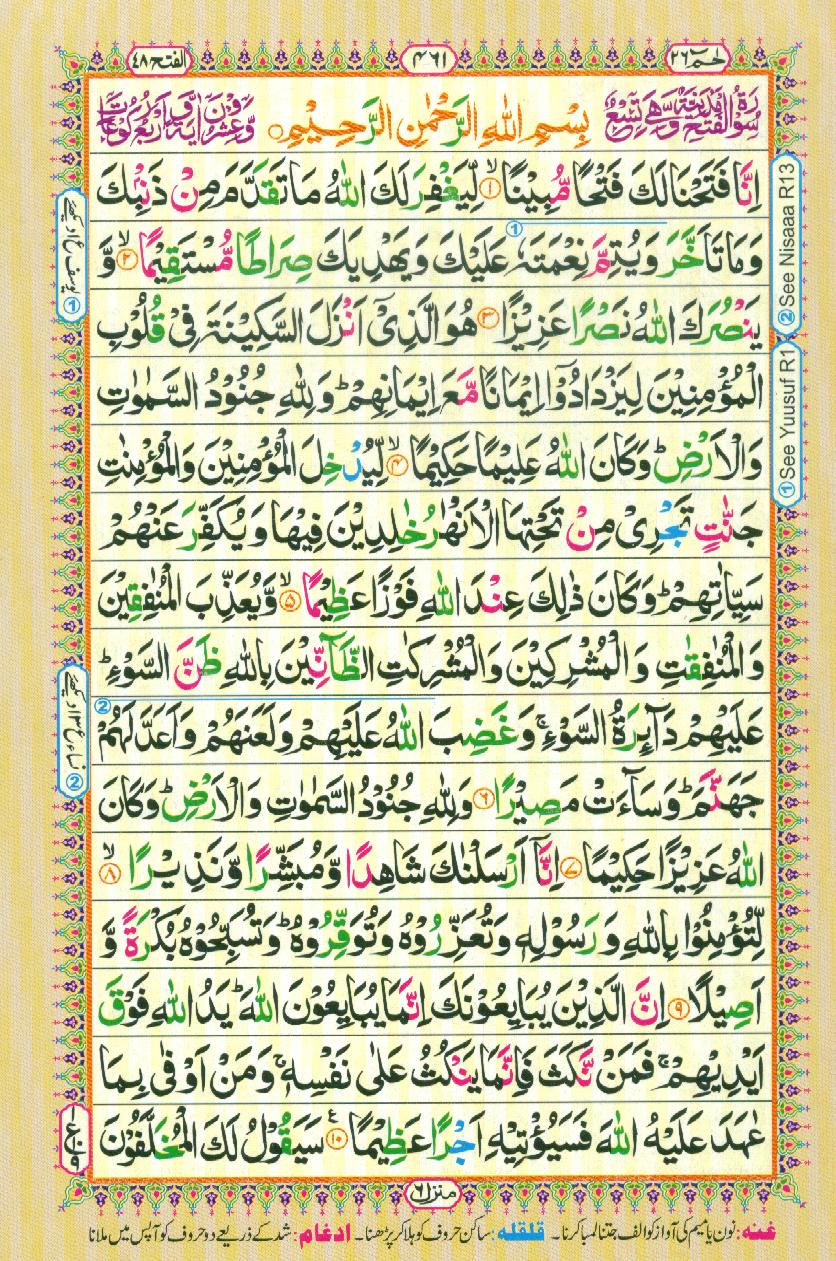 حٰمٓ ٢٦
٤٦١
الفتح ٤٨
سُوْرَةُ الْفَتْحِ مَدَنِيَّةٌ وَّهِيَ تِسْعٌ
بِسْمِ اللّٰهِ الرَّحْمٰنِ الرَّحِيْمِ
وَّعِشْرُوْنَ اٰيَةً وَّاَرْبَعُ رُكُوْعَاتٍ
اِنَّا فَتَحْنَا لَكَ فَتْحًا مُّبِيْنًا ۙ﴿۱﴾ لِّيَغْفِرَ لَكَ اللّٰهُ مَا تَقَدَّمَ مِنْ ذَنْۢبِكَ
وَمَا تَاَخَّرَ وَيُتِمَّ نِعْمَتَهٗ عَلَيْكَ وَيَهْدِيَكَ صِرَاطًا مُّسْتَقِيْمًا ۙ﴿۲﴾ وَّ
يَنْصُرَكَ اللّٰهُ نَصْرًا عَزِيْزًا ﴿۳﴾ هُوَ الَّذِيْۤ اَنْزَلَ السَّكِيْنَةَ فِيْ قُلُوْبِ
الْمُؤْمِنِيْنَ لِيَزْدَادُوْۤا اِيْمَانًا مَّعَ اِيْمَانِهِمْ ؕ وَلِلّٰهِ جُنُوْدُ السَّمٰوٰتِ
وَالْاَرْضِ ؕ وَكَانَ اللّٰهُ عَلِيْمًا حَكِيْمًا ۙ﴿۴﴾ لِّيُدْخِلَ الْمُؤْمِنِيْنَ وَالْمُؤْمِنٰتِ
جَنّٰتٍ تَجْرِيْ مِنْ تَحْتِهَا الْاَنْهٰرُ خٰلِدِيْنَ فِيْهَا وَيُكَفِّرَ عَنْهُمْ
سَيِّاٰتِهِمْ ؕ وَكَانَ ذٰلِكَ عِنْدَ اللّٰهِ فَوْزًا عَظِيْمًا ۙ﴿۵﴾ وَّيُعَذِّبَ الْمُنٰفِقِيْنَ
وَالْمُنٰفِقٰتِ وَالْمُشْرِكِيْنَ وَالْمُشْرِكٰتِ الظَّآنِّيْنَ بِاللّٰهِ ظَنَّ السَّوْءِ ؕ
عَلَيْهِمْ دَآئِرَةُ السَّوْءِ ۚ وَغَضِبَ اللّٰهُ عَلَيْهِمْ وَلَعَنَهُمْ وَاَعَدَّ لَهُمْ
جَهَنَّمَ ؕ وَسَآءَتْ مَصِيْرًا ﴿۶﴾ وَلِلّٰهِ جُنُوْدُ السَّمٰوٰتِ وَالْاَرْضِ ؕ وَكَانَ
اللّٰهُ عَزِيْزًا حَكِيْمًا ﴿۷﴾ اِنَّاۤ اَرْسَلْنٰكَ شَاهِدًا وَّمُبَشِّرًا وَّنَذِيْرًا ۙ﴿۸﴾
لِّتُؤْمِنُوْا بِاللّٰهِ وَرَسُوْلِهٖ وَتُعَزِّرُوْهُ وَتُوَقِّرُوْهُ ؕ وَتُسَبِّحُوْهُ بُكْرَةً وَّ
اَصِيْلًا ﴿۹﴾ اِنَّ الَّذِيْنَ يُبَايِعُوْنَكَ اِنَّمَا يُبَايِعُوْنَ اللّٰهَ ؕ يَدُ اللّٰهِ فَوْقَ
اَيْدِيْهِمْ ۚ فَمَنْ نَّكَثَ فَاِنَّمَا يَنْكُثُ عَلٰى نَفْسِهٖ ۚ وَمَنْ اَوْفٰى بِمَا
عٰهَدَ عَلَيْهُ اللّٰهَ فَسَيُؤْتِيْهِ اَجْرًا عَظِيْمًا ﴿۱۰﴾ سَيَقُوْلُ لَكَ الْمُخَلَّفُوْنَ
② See Nisaaa R13
① See Yuusuf R1
منزل ٦
غنہ: نون یا میم کی آواز کو الف جتنا لمبا کرنا۔ قلقلہ: ساکن حروف کو ہلا کر پڑھنا۔ ادغام: شد کے ذریعے دو حروف کو آپس میں ملانا